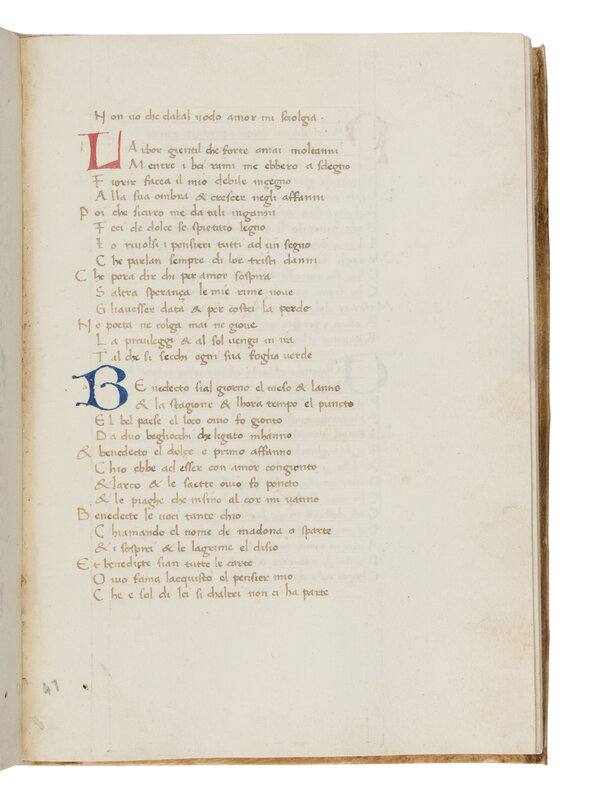 Non vo che dabal nodo amor mi sciolgia .
LArbor gientil che forte amai moltanni
Mentre i bei rami me ebbero a sdegno
Fiorir facea il mio debile ingegno
Alla sua ombra & crescer negli affanni
Poi che sicuro me da tali inganni
Feci de dolce se spietato legno
Io rivolsi i pensieri tutti ad un segno
Che parlan sempre di lor tristi danni
Che pora dir chi per amor sospira
Saltra sperança le mie rime nove
Ghavesser data & per costei la perde
Ne poeta ne colga mai ne giove
La privileggi & al sol venga in ira
Tal che si secchi ogni sua foglia verde
BEnedecto sial giorno el meso & lanno
& la stagione & lhora tempo el puncto
El bel paese el loco ovio fo gionto
Da duo begliocchi che ligato mhanno
& benedecto el dolce e primo affanno
Chio ebbe ad esser con amor congionto
& larco & le saette ovio fo poncto
& le piaghe che insino al cor mi vanno
Benedecte le voci tante chio
Chiamando el nome de madona o sparte
& i sospiri & le lagrime el disio
Et benedicte sian tutte le carte
Ovio fama lacquisto el pensier mio
Che e sol di lei si chaltri non ci ha parte
47